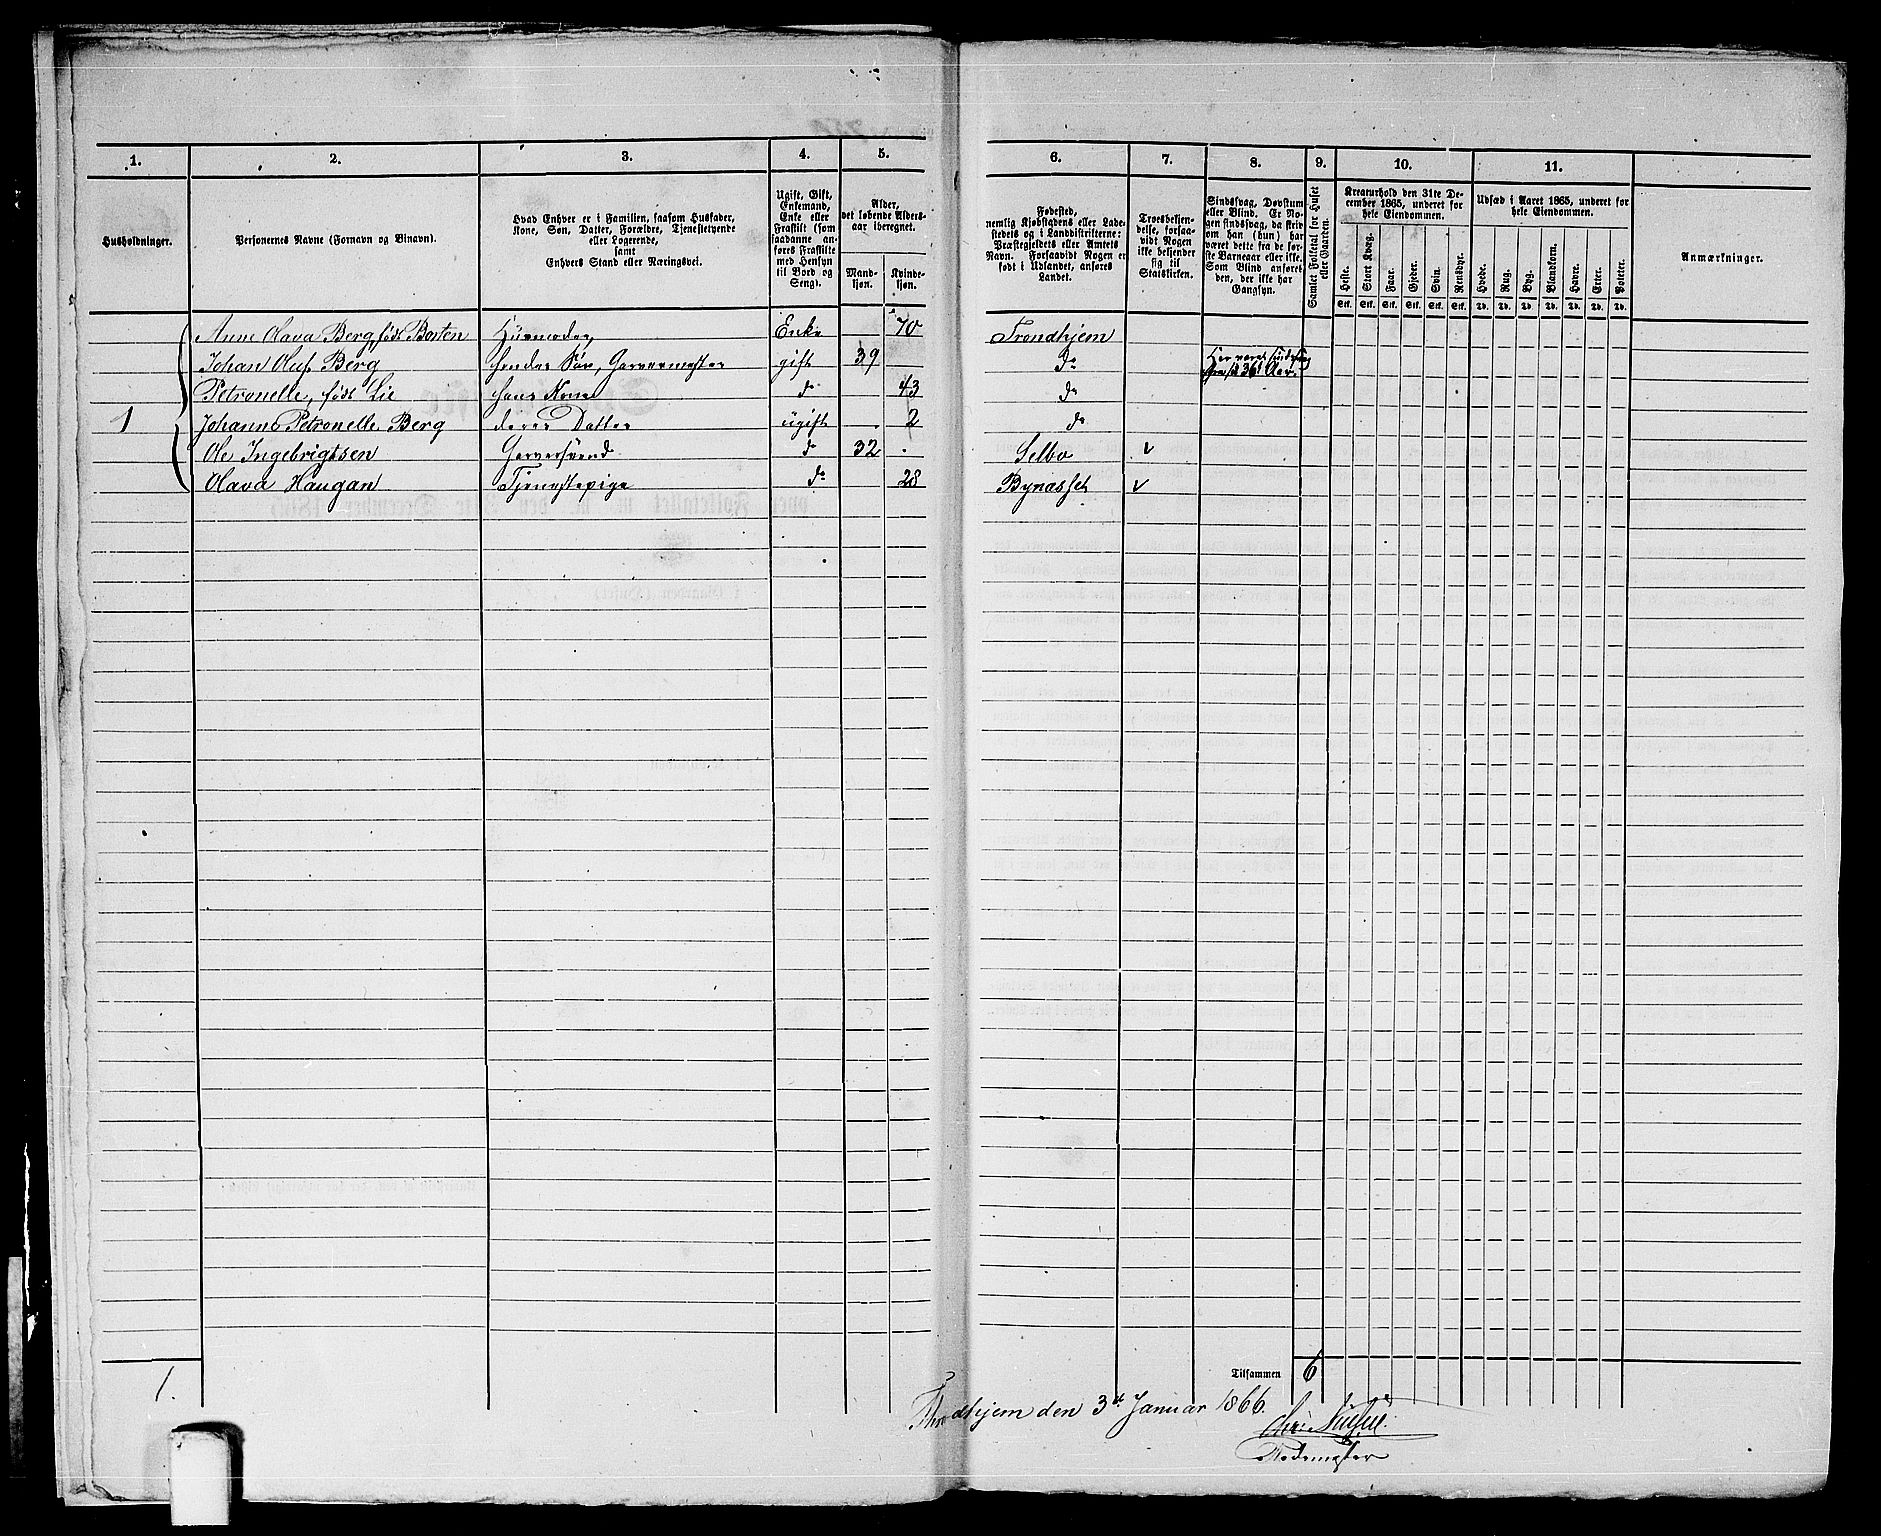 1. 2. 3. 4. 5. 6. 7. 8. 9. 10. 11.
Husholdninger.
Personernes Navne (Fornavn og Binavn).
Hvad Enhver er i Familien, saasom Husfader,
Kone, Søn, Datter, Forældre, Tjenestetyende
eller Logerende,
samt
Enhvers Stand eller Næringsvei.
Ugift, Gift,
Enkemand,
Enke eller
Fraskilt (som
saadanne an-
føres Fraskilte
med Hensyn
til Bord og
Seng).
Alder,
det løbende Alders-
aar iberegnet.
Mand-
kjøn.
Kvinde-
kjøn.
Fødested,
nemlig Kjøbstadens eller Lade-
stedets og i Landdistrikterne:
Præstegjeldets eller Amtets
Navn. Forsaavidt Nogen er
født i Udlandet, anføres
Landet.
Troesbekjen-
delse, forsaa-
vidt Nogen
ikke bekjender
sig til
Statskirken.
Sindssvag, Døvstum
eller Blind. Er No-
gen sindssvag, da skriv
om han (hun) har
været dette fra de før-
ste Barneaar eller ikke.
Som Blind anføres
den, der ikke har
Gangsyn.
Samlet Folketal for Huset
eller Gaarden.
Kreaturhold den 31te De-
cember 1865, underet for
hele Eiendommen.
Heste. Stort Kvæg. Faar. Gjeder. Svin. Rensdyr.
Stk. Stk. Stk. Stk. Stk. Stk.
Udsæd i Aaret 1865, underet for
hele Eiendommen.
Hvede. Rug. Byg. Blandkorn. Havre. Erter. Poteter.
Td. Td. Td. Td. Td. Td. Td.
Anmærkninger.
Anne Olava Berg, født Bosten Huusmoder, Enke 70 Trondhjem
Johan Oluf Berg hendes Søn, Garvermester gift 39 do Har været
36 Aar.
Petronelle, født Lie hans Kone do 43 do
1 Johanne Petronelle Berg deres Datter ugift 2 do
Ole Ingebrigtsen Garversvend do 32 Selbo v
Olava Haugan Tjenestepige do 28 Bynæsset v
Tilsammen 6
1.
Throndhjem den 3de Januar 1866
Rodemester